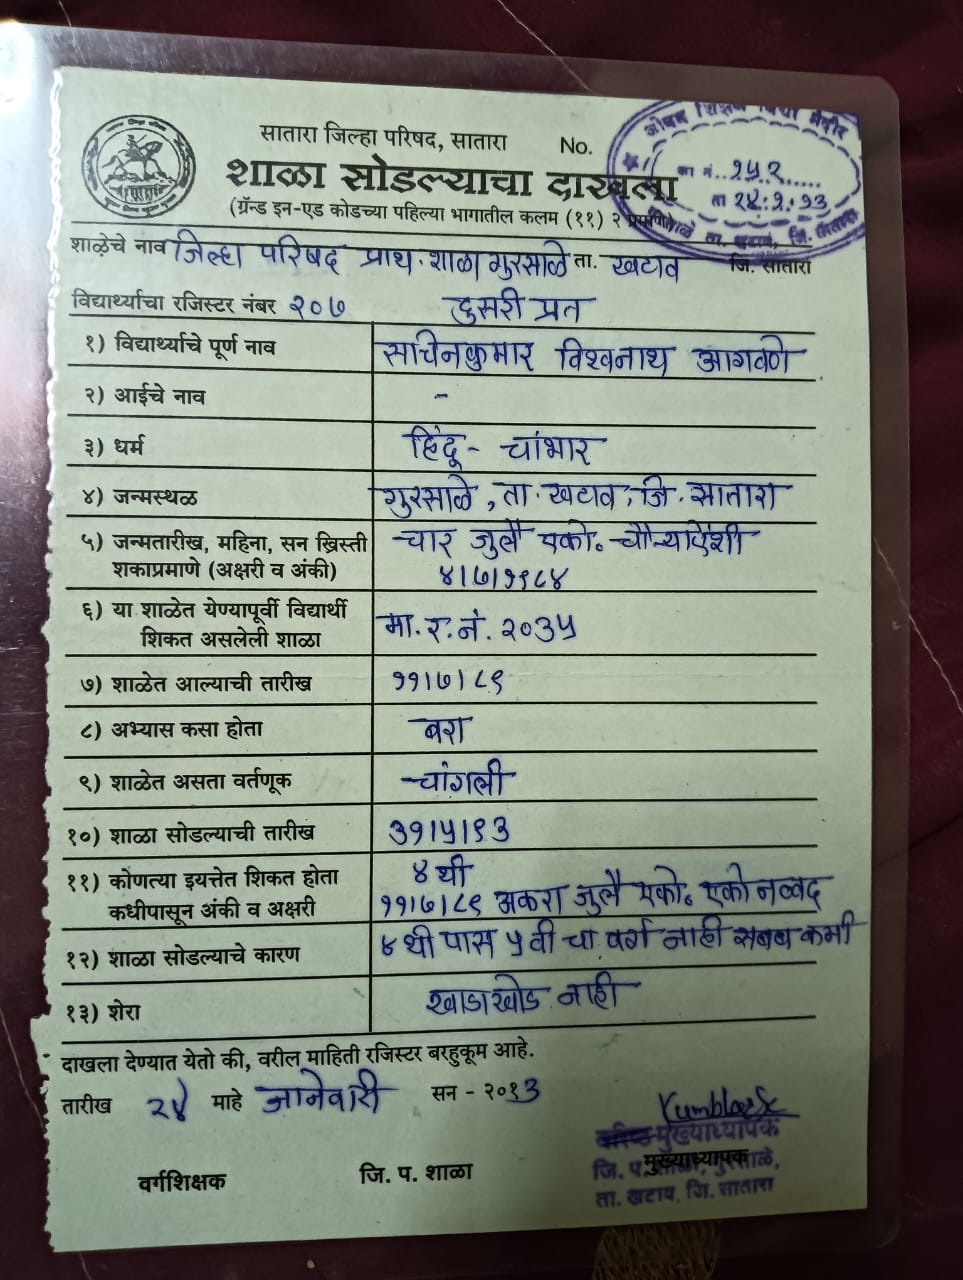 सातारा जिल्हा परिषद, सातारा No.
जीवन शिक्षण विद्या मंदीर
शाळा सोडल्याचा दाखला
का नं. १५२
ता २४.१.१३
(ग्रॅन्ड इन-एड कोडच्या पहिल्या भागातील कलम (११) २ प्रमाणे
शाळेचे नाव जिल्हा परिषद प्राथ. शाळा गुरसाळे ता. खटाव जि. सातारा
विद्यार्थ्याचा रजिस्टर नंबर २०७ दुसरी प्रत
१) विद्यार्थ्याचे पूर्ण नाव सचिनकुमार विश्वनाथ आगवणे
२) आईचे नाव -
३) धर्म हिंदू - चांभार
४) जन्मस्थळ गुरसाळे, ता. खटाव, जि. सातारा
५) जन्मतारीख, महिना, सन ख्रिस्ती चार जुलै एको. चौऱ्याऐंशी
शकाप्रमाणे (अक्षरी व अंकी) ४।७।१९८४
६) या शाळेत येण्यापूर्वी विद्यार्थी
शिकत असलेली शाळा मा. र. नं. २०३५
७) शाळेत आल्याची तारीख ११।७।८९
८) अभ्यास कसा होता बरा
९) शाळेत असता वर्तणूक चांगली
१०) शाळा सोडल्याची तारीख ३१।५।९३
११) कोणत्या इयत्तेत शिकत होता ४ थी
कधीपासून अंकी व अक्षरी ११।७।८९ अकरा जुलै एको. एकोनव्वद
१२) शाळा सोडल्याचे कारण ४ थी पास ५ वी चा वर्ग नाही सबब कमी
१३) शेरा खाडाखोड नाही
दाखला देण्यात येतो की, वरील माहिती रजिस्टर बरहुकूम आहे.
तारीख २४ माहे जानेवारी सन - २०१३
मुख्याध्यापक
वर्गशिक्षक जि. प. शाळा मुख्याध्यापक
जि. प. शाळा, गुरसाळे,
ता. खटाव, जि. सातारा